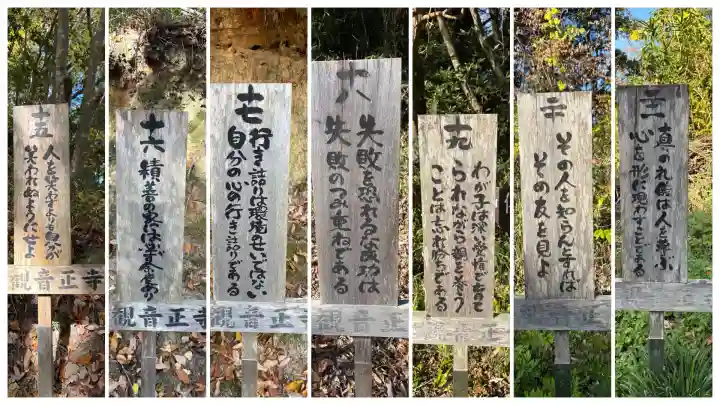 十五
人を笑わすより自分が
笑われぬようにせよ
観音正寺
十六
積善の家には余慶あり
観音正寺
十七
行き詰りは環境のせいではない
自分の心の行き詰りである
観音正寺
十八
失敗を恐れるな成功は
失敗のつみ重ねである
観音正
十九
わが子は深い愛情で育て
られながら親を養う
ことはふれ合いである
観音正寺
二十
その人を知らんとすれば
その友を見よ
観音正寺
真の礼儀は人を尊ぶ
心を形に現わすことである
観音正寺